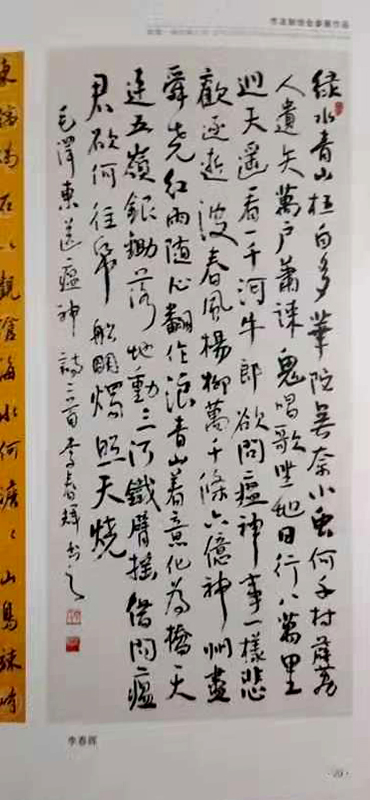 绿水青山枉自多華陀無奈小虫何千村薜荔
人遺矢萬户蕭疎鬼唱歌坐地日行八萬里
巡天遥看一千河牛郎欲問瘟神事一樣悲
歡逐逝波春風楊柳萬千條六億神州盡
舜尧紅雨随心翻作浪青山着意化為橋天
連五嶺銀鋤落地動三河鐵臂摇借問瘟
君欲何往帋船明燭照天燒
毛澤東送瘟神詩二首李春輝书之
東臨碣石以觀滄海水何澹々山島竦峙
李春辉